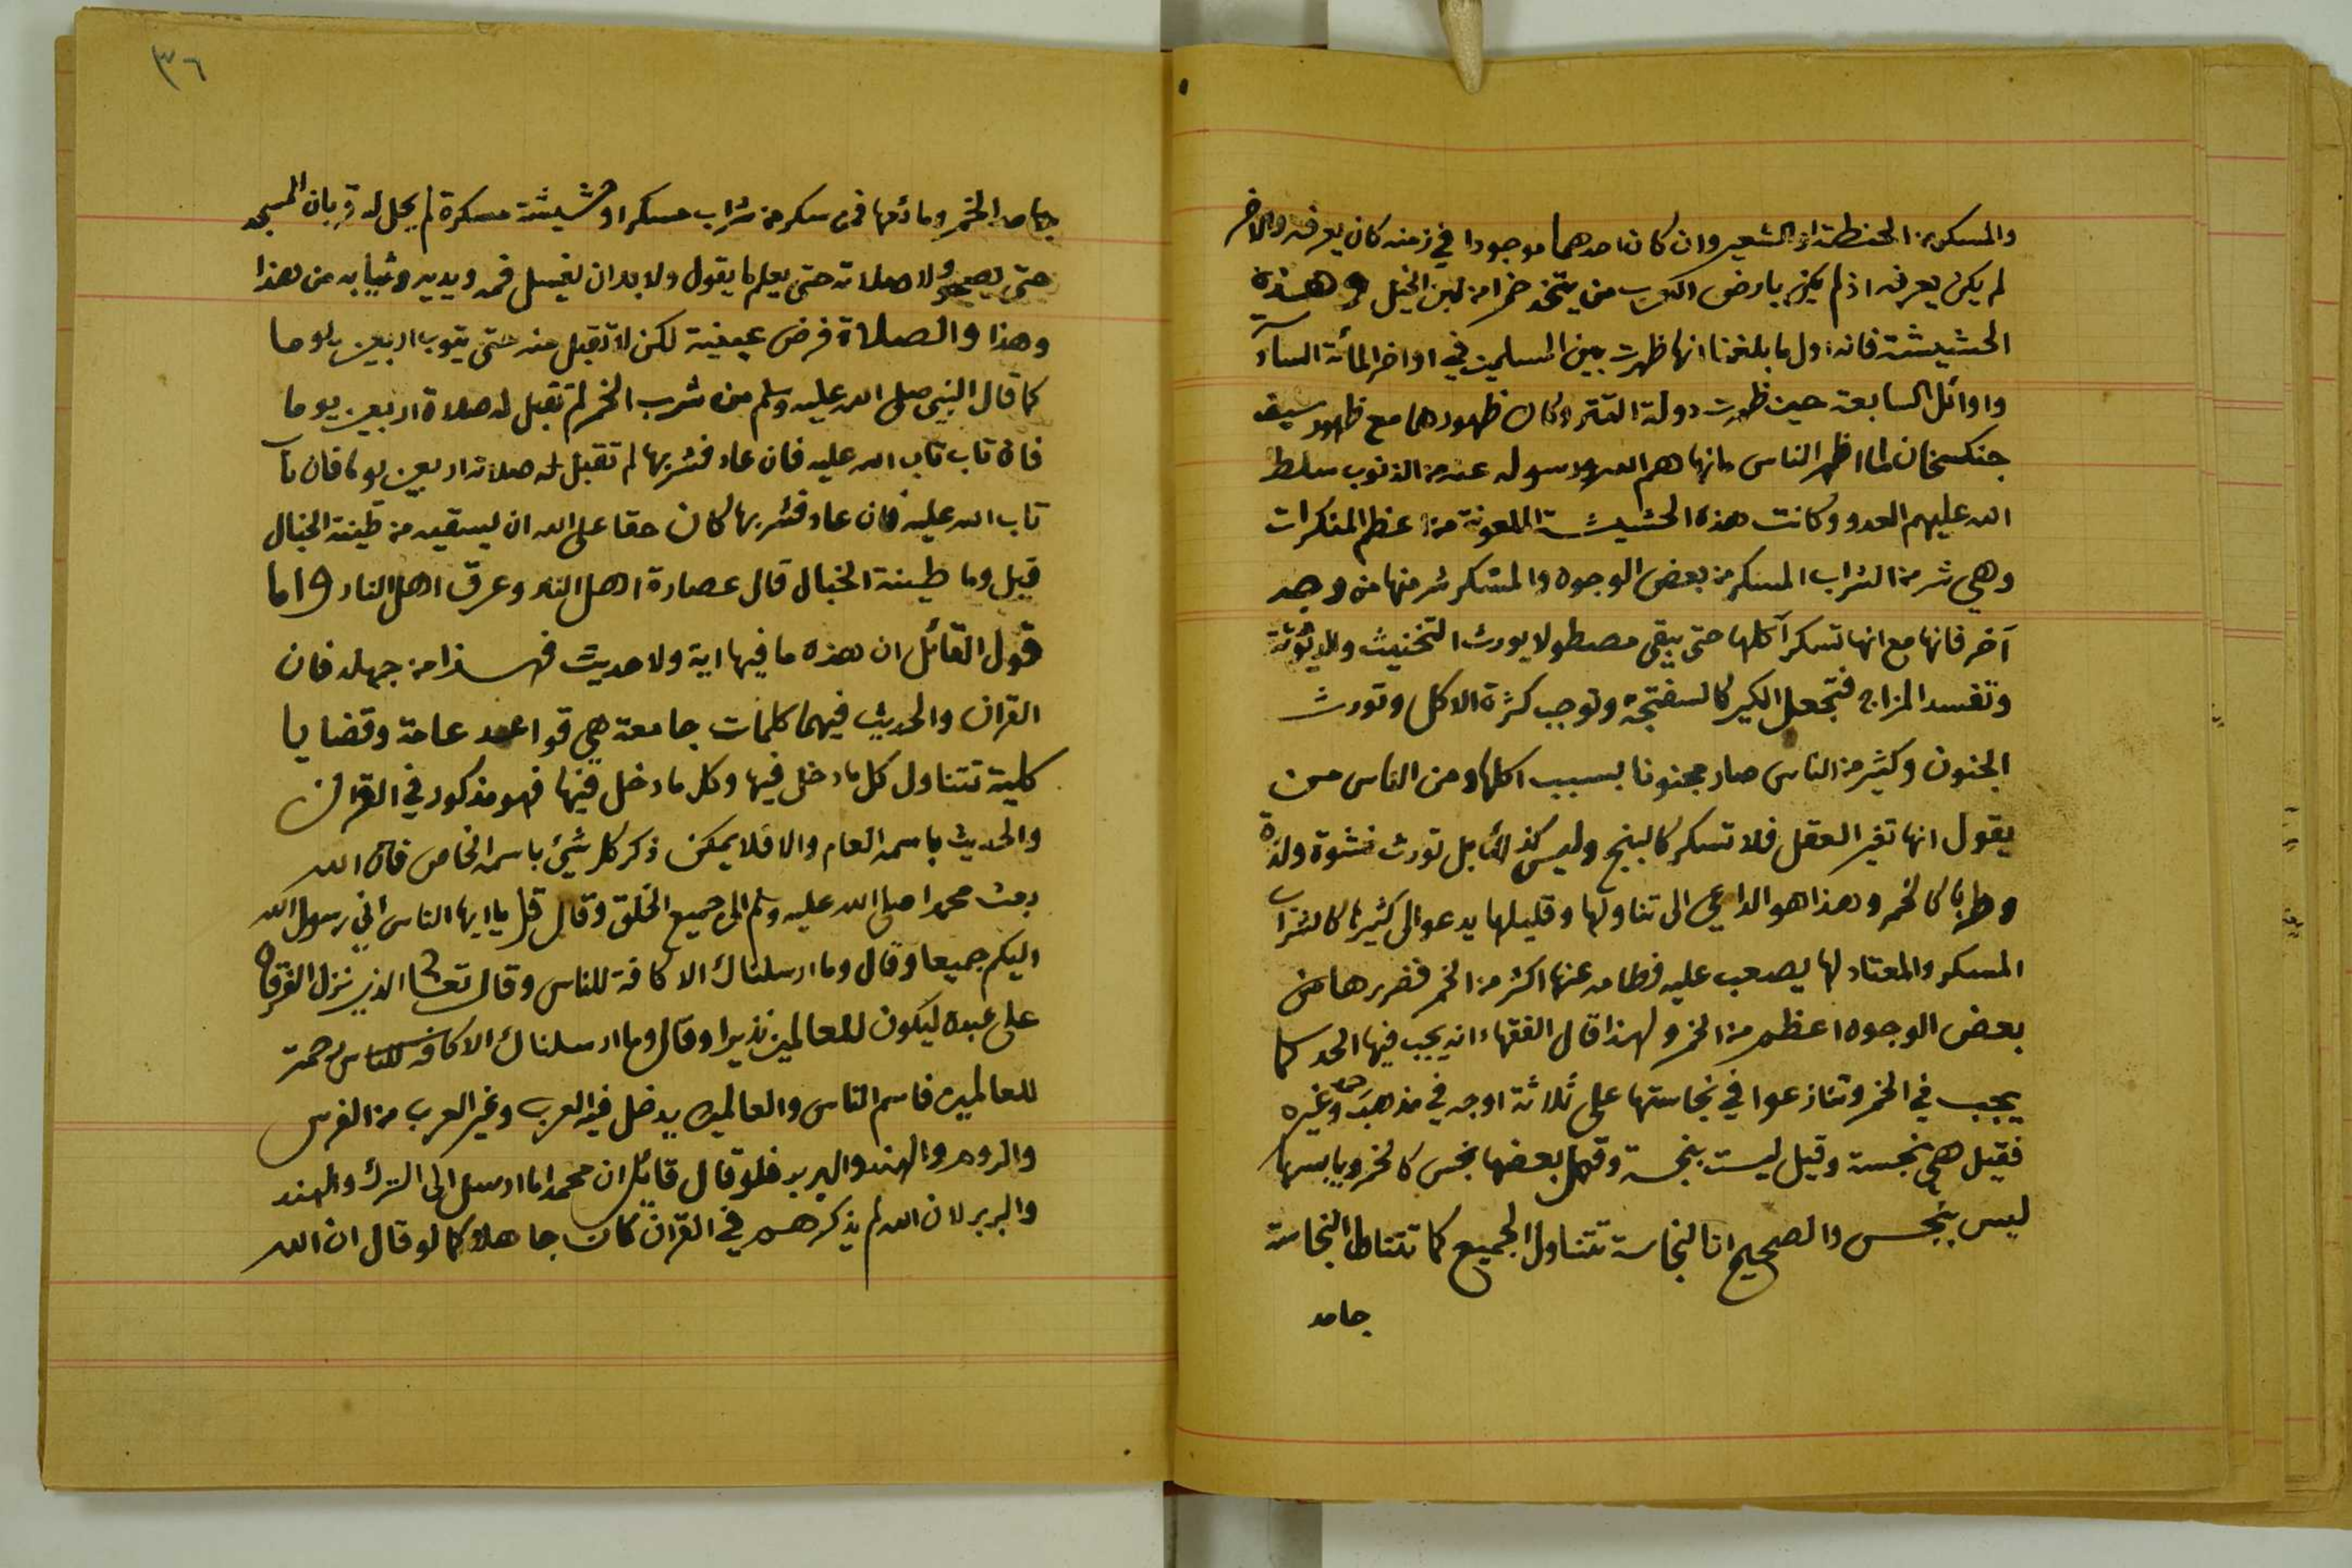 والمسكر من الحنطة او الشعير وان كان احدهما موجودا في زمنه كان يعرفه والاخر
لم يكن يعرفه اذ لم يكن بارض العرب من يتخذ خمرا من لبن الخيل وهذه
الحشيشة فانه اول ما بلغنا انها ظهرت بين المسلمين في اواخر المائة السا
واوائل السابعة حين ظهرت دولة التتر وكان ظهورها مع ظهور سيف
جنكسخان لما اظهر الناس ما نهاهم الله ورسوله عنه من الذنوب سلط
الله عليهم العدو وكانت هذه الحشيشة الملعونة من اعظم المنكرات
وهي شر من الشراب المسكر من بعض الوجوه والمسكر شر منها من وجه
آخر فانها مع انها تسكر آكلها حتى يبقى مصطولا يورث التخنيث والديوثة
وتفسد المزاج فتجعل الكبير كالسفتجة وتوجب كثرة الاكل وتورث
الجنون وكثير من الناس صار مجنونا بسبب اكلها ومن الناس من
يقول انها تغير العقل فلا تسكر كالبنج وليس كذلك بل تورث نشوة ولذة
وطربا كالخمر وهذا هو الداعي الى تناولها وقليلها يدعو الى كثيرها كالشراب
المسكر والمعتاد لها يصعب عليه فطامه عنها اكثر من الخمر فضررها من
بعض الوجوه اعظم من الخمر ولهذا قال الفقهاء انه يجب فيها الحد كما
يجب في الخمر وتنازعوا في نجاستها على ثلاثة اوجه في مذهب احمد وغيره
فقيل هي نجسة وقيل ليست بنجسة وقيل بعضها نجس كالخمر ويابسها
ليس بنجس والصحيح ان النجاسة تتناول الجميع كما تتناول النجاسة
جامد
٣٦
جامد الخمر ومائعها فمن سكر من شراب مسكر او حشيشة مسكرة لم يحل له قربان المسجد
حتى يصحو ولا صلاته حتى يعلم ما يقول ولا بد ان يغسل فمه ويديه وثيابه من هذا
وهذا والصلاة فرض عينية لكن لا تقبل منه حتى يتوب اربعين يوما
كما قال النبي صلى الله عليه وسلم من شرب الخمر لم تقبل له صلاة اربعين يوما
فان تاب تاب الله عليه فان عاد فشربها لم تقبل له صلاة اربعين يوما فان تاب
تاب الله عليه فان عاد فشربها كان حقا على الله ان يسقيه من طينة الخبال
قيل وما طينة الخبال قال عصارة اهل النار وعرق اهل النار واما
قول القائل ان هذه ما فيها اية ولا حديث فهذا من جهله فان
القران والحديث فيهما كلمات جامعة هي قواعد عامة وقضايا
كلية تتناول كل ما دخل فيها وكل ما دخل فيها فهو مذكور في القران
والحديث باسمه العام والا فلا يمكن ذكر كل شيئ باسمه الخاص فان الله
بعث محمدا صلى الله عليه وسلم الى جميع الخلق وقال قل يا ايها الناس اني رسول الله
اليكم جميعا وقال وما ارسلناك الا كافة للناس وقال تعالى الذي نزل الفرقان
على عبده ليكون للعالمين نذيرا وقال وما ارسلناك الا كافة للناس رحمة
للعالمين فاسم الناس والعالمين يدخل فيه العرب وغير العرب من الفرس
والروم والهند والبربر فلو قال قائل ان محمدا ما ارسل الى الترك والهند
والبربر لان الله لم يذكرهم في القران كان جاهلا كما لو قال ان الله